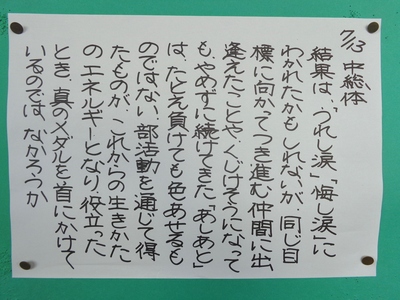 7/13 中総体
結果は、「うれし涙」「悔し涙」に
わかれたかもしれないが、同じ目
標に向かってつき進む仲間に出
逢えたことや、くじけそうになって
も、やめずに続けてきた「あしあと」
は、たとえ負けても色あせるも
のではない。部活動を通じて得
たものが、これからの生きかた
のエネルギーとなり、役立った
とき、真のメダルを首にかけて
いるのでは、なかろうか